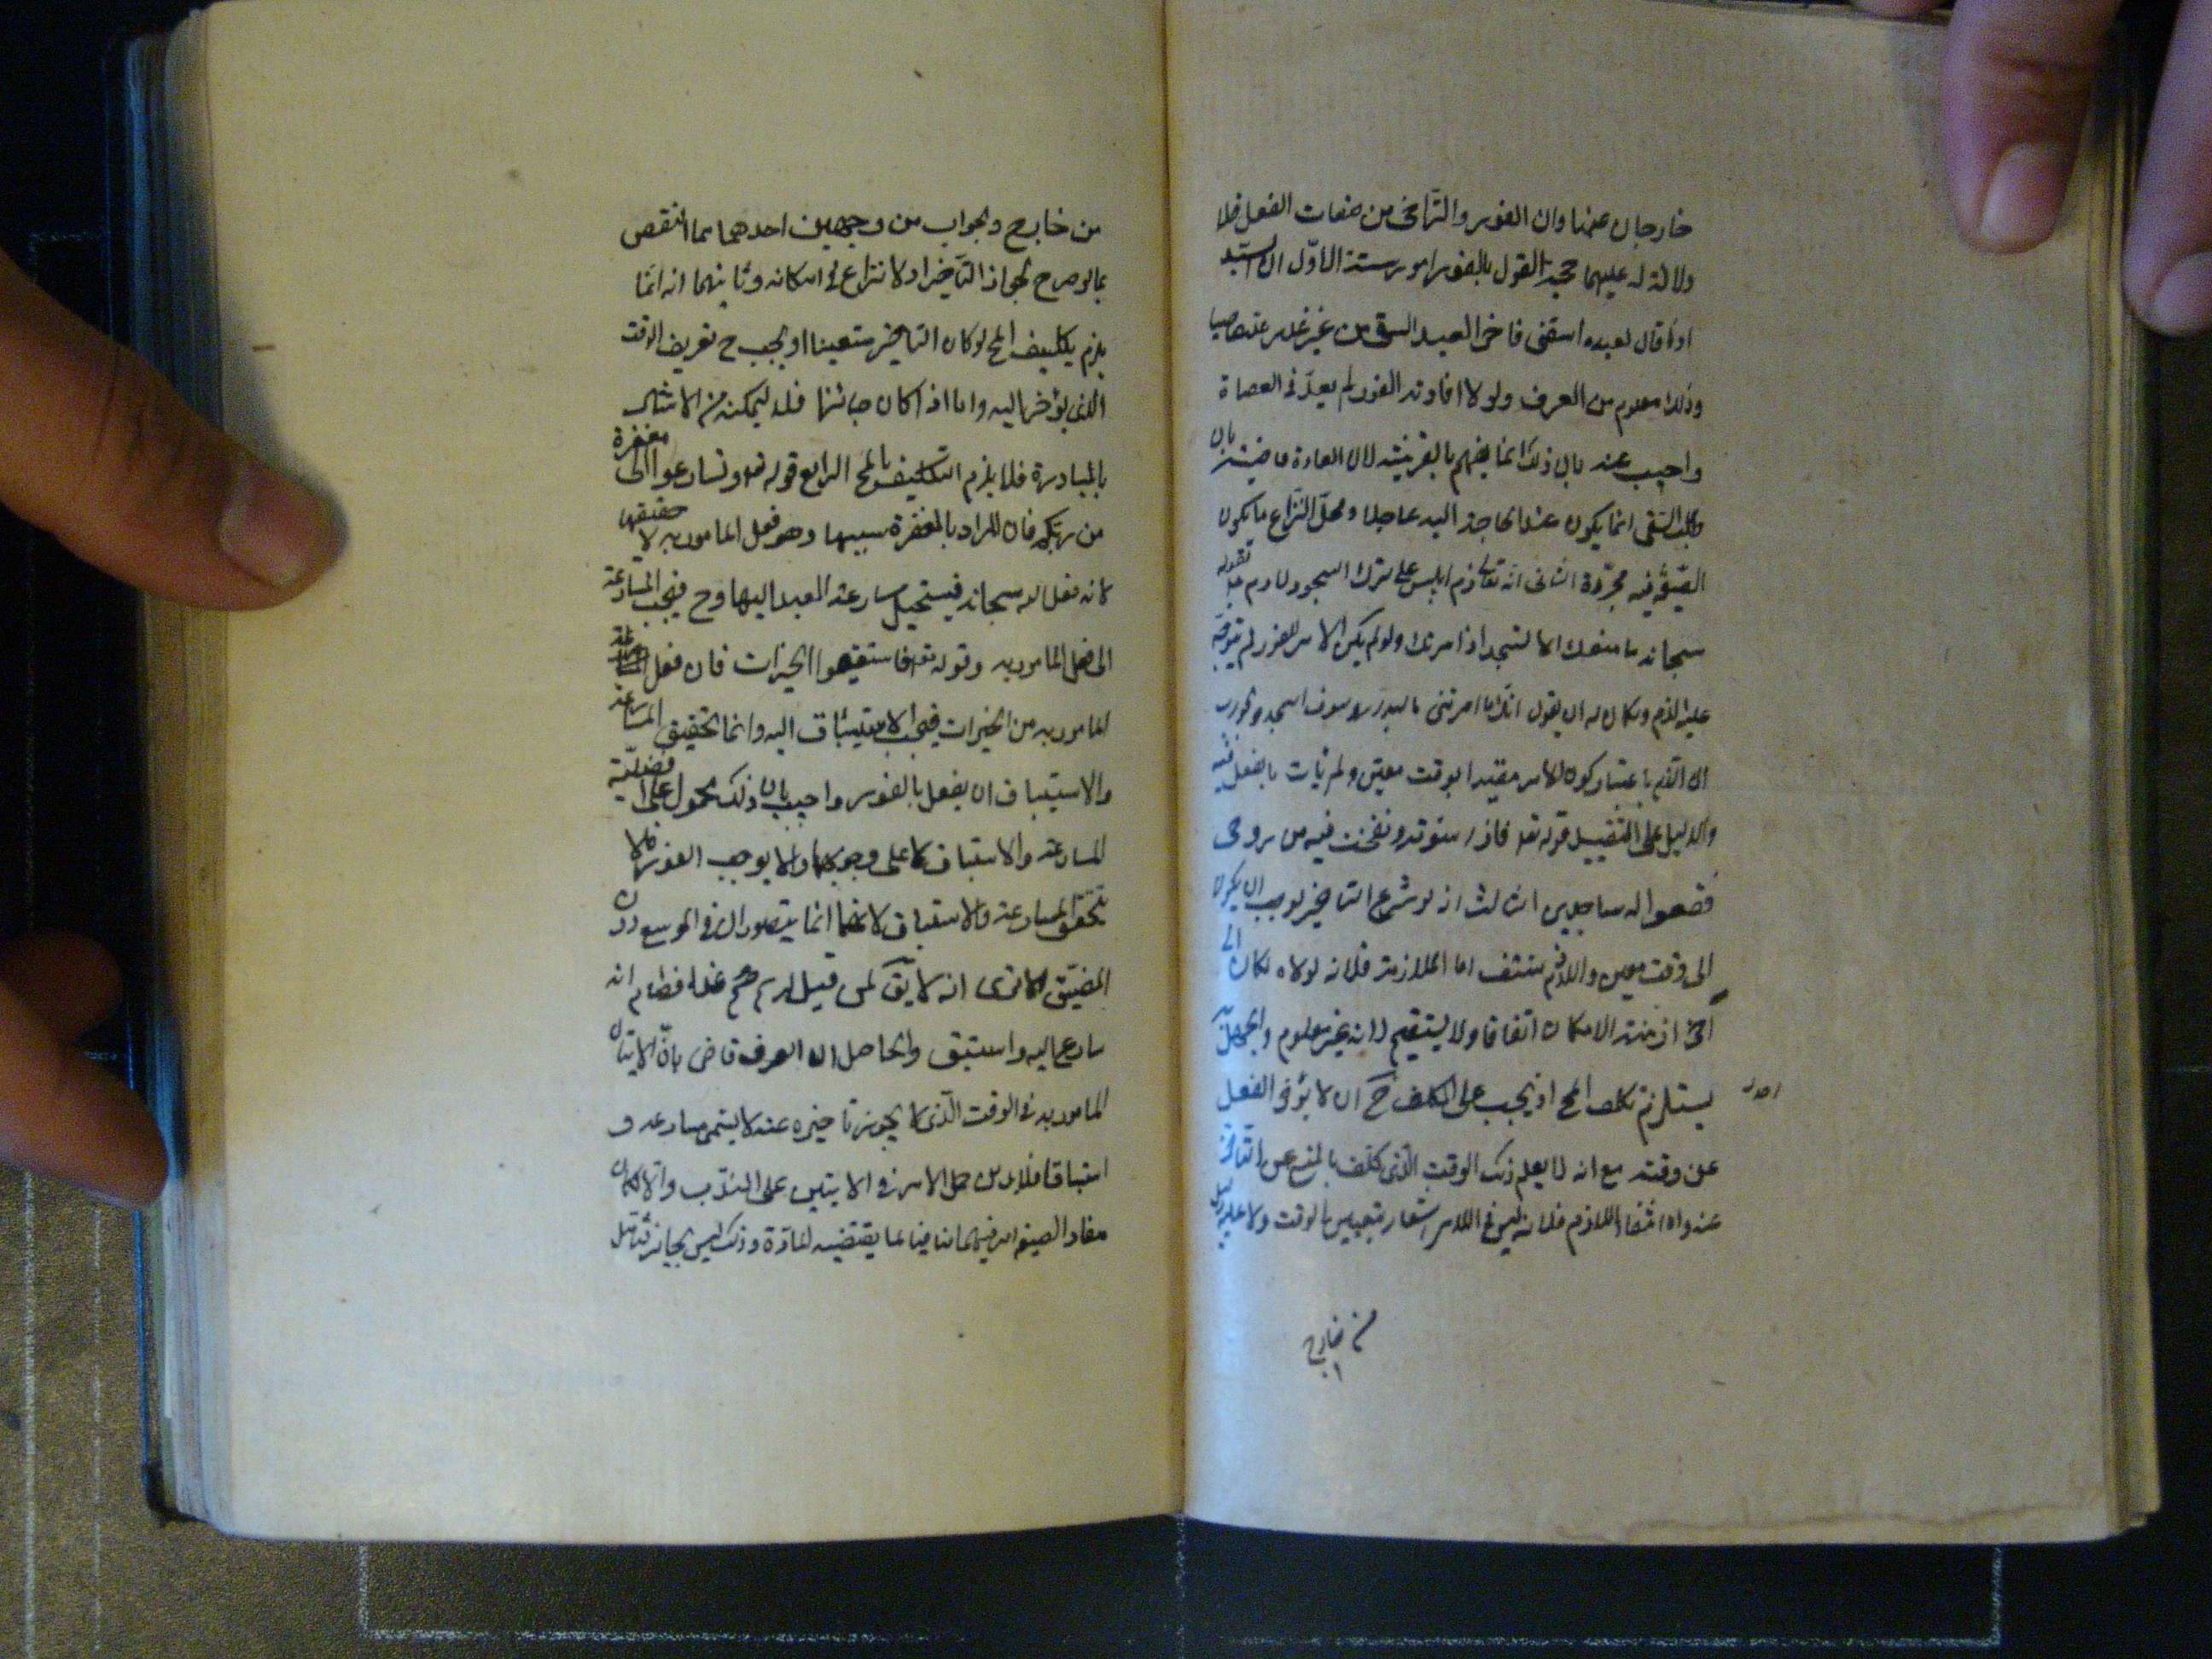 خارجان عنها وان الفور والتراخى من صفات الفعل فلا
دلالة له عليهما حجة القول بالفور امور ستة الاول ان السيد
اذا قال لعبده اسقنى فاخر العبد السقى من غير عذر عد عاصيا
وذلك معلوم من العرف ولولا افادته الفور لم يعد فى العصاة
واجيب عنه بان ذلك انما يفهم بالقرينة لان العادة قاضية بان
طلب السقى انما يكون عند الحاجة اليه عاجلا ومحل النزاع ما يكون
الصيغة فيه مجردة الثانى انه تعالى ذم ابليس على ترك السجود لادم بقوله
سبحانه ما منعك الا تسجد اذ امرتك ولو لم يكن الامر للفور لم يتوجه
عليه الذم ولكان له ان يقول انك ما امرتنى بالبدار وسوف اسجد والجواب
ان الذم باعتبار كون الامر مقيدا بوقت معين ولم يأت بالفعل فيه
والدليل على التقييد قوله تعالى فاذا سويته ونفخت فيه من روحى
فقعوا له ساجدين الثالث انه لو شرع التاخير لوجب ان يكون
الى وقت معين واللازم منتف اما الملازمة فلانه لولاه لكان الى
آخر ازمنة الامكان اتفاقا ولا يستقيم لانه غير معلوم والجهل به
يستلزم تكلف المح اذ يجب على المكلف ح ان لا يؤخر الفعل
عن وقته مع انه لا يعلم ذلك الوقت الذى كلف بالمنع عن التاخير
عنه واما انتفاء اللازم فلانه ليس فى الامر اشعار بتعيين الوقت ولا عليه دليل
من خارج
من خارج والجواب من وجهين احدهما النقض
بما لو صرح بجواز التأخير اذ لا نزاع فى امكانه وثانيهما انه انما
يلزم تكليف المح لو كان التاخير متعينا اذ يجب ح تعريف الوقت
الذى يؤخر اليه واما اذا كان جائزا فلا لتمكنه من الامتثال
بالمبادرة فلا يلزم التكليف بالمح الرابع قوله تعالى وسارعوا الى مغفرة
من ربكم فان المراد بالمغفرة سببها وهو فعل المامور به لا حقيقتها
لانه فعل الله سبحانه فيستحيل مسارعة العبد اليها وح فيجب المسارعة
الى فعل المامور به وقوله تعالى فاستبقوا الخيرات فان فعل
المامور به من الخيرات فيجب الاستباق اليه وانما يتحقق المسارعة
والاستباق ان يفعل بالفور واجيب بان ذلك محمول على افضلية
المسارعة والاستباق لا على وجوبهما والا لوجب الفور فلا
يتحقق المسارعة والاستباق لانهما انما يتصوران فى الموسع دون
المضيق الا ترى انه لا يق لمن قيل له صم غدا فصام انه
سارع اليه واستبق والحاصل ان العرف قاض بان الاتيان
المامور به فى الوقت الذى لا يجوز تأخيره عنه لا يسمى مسارعة و
استباقا فلا بد من حمل الامر فى الايتين على الندب والا لكان
مفاد الصيغة فيهما منافيا لما يقتضيه المادة وذلك ليس بجائز فتأمل